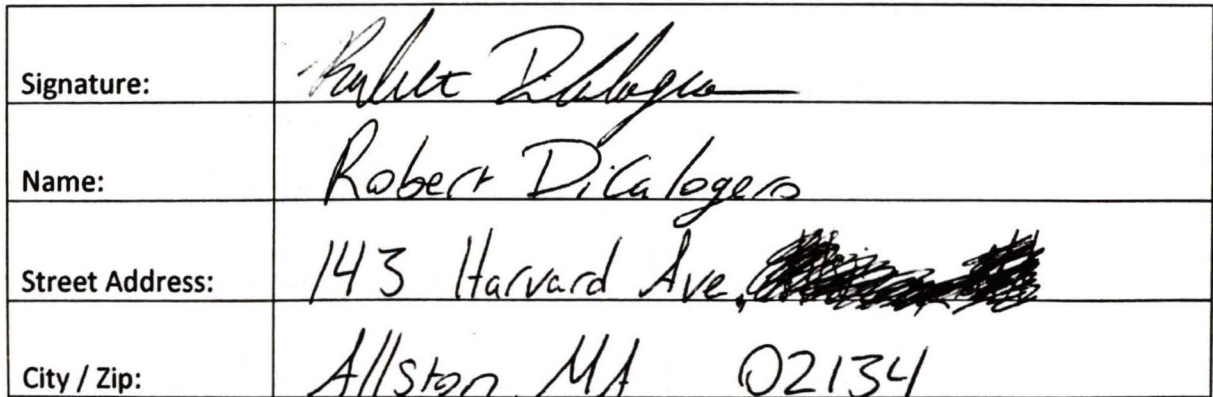 Signature: Robert DiCalogero
Name: Robert DiCalogero
Street Address: 143 Harvard Ave,
City / Zip: Allston, MA 02134